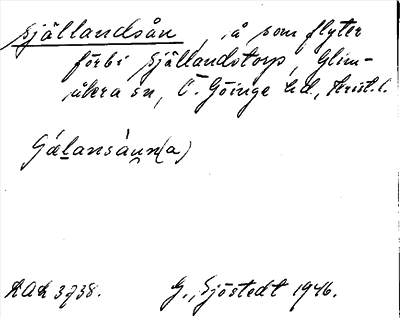 Själlandsån, å som flyter
förbi Själlandstorp, Glim-
åkra sn, Ö. Göinge hd., Krist. l.
Gälansåun(a)
RAÄ 3738. G. Sjöstedt 1946.